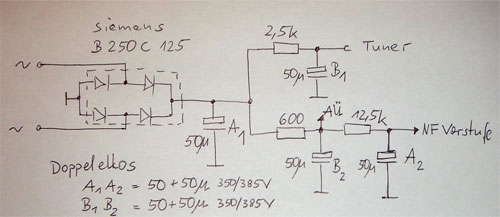 Siemens
B 250 C 125
2,5k
Tuner
50µ
B1
~
A1
50µ
600
AÜ
12,5k
NF Vorstufe
50µ
B2
50µ
A2
~
Doppelelkos
A1 A2 = 50 + 50µ 350/385V
B1 B2 = 50 + 50µ 350/385V